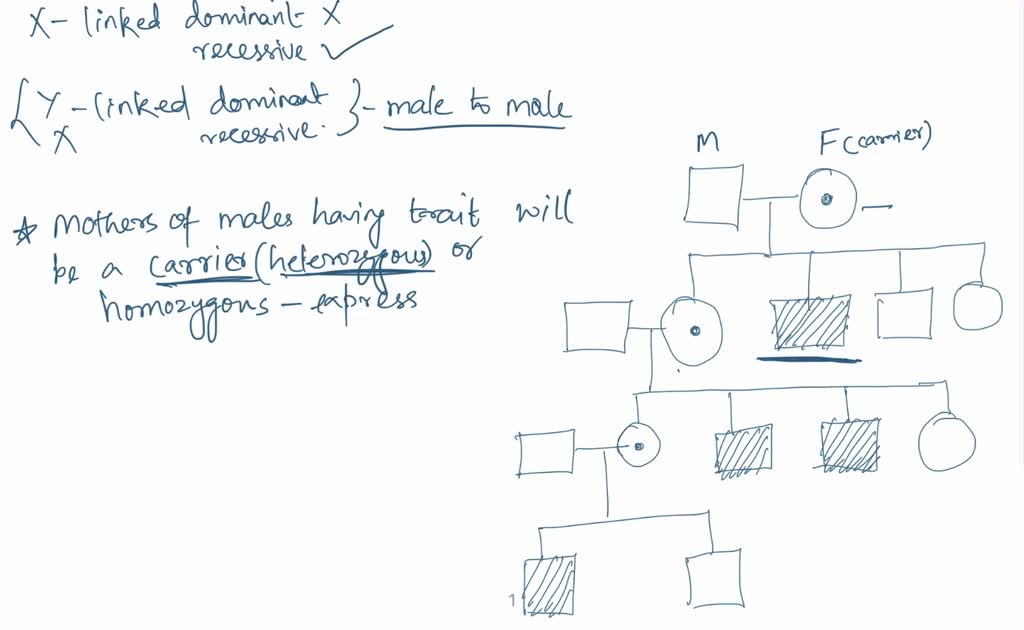 X- linked dominant X
recessive ✓
{ Y - linked dominant } - male to male
X recessive.
M F (carrier)
* Mothers of males having trait will
be a carrier (heterozygous) or
homozygous - express
1